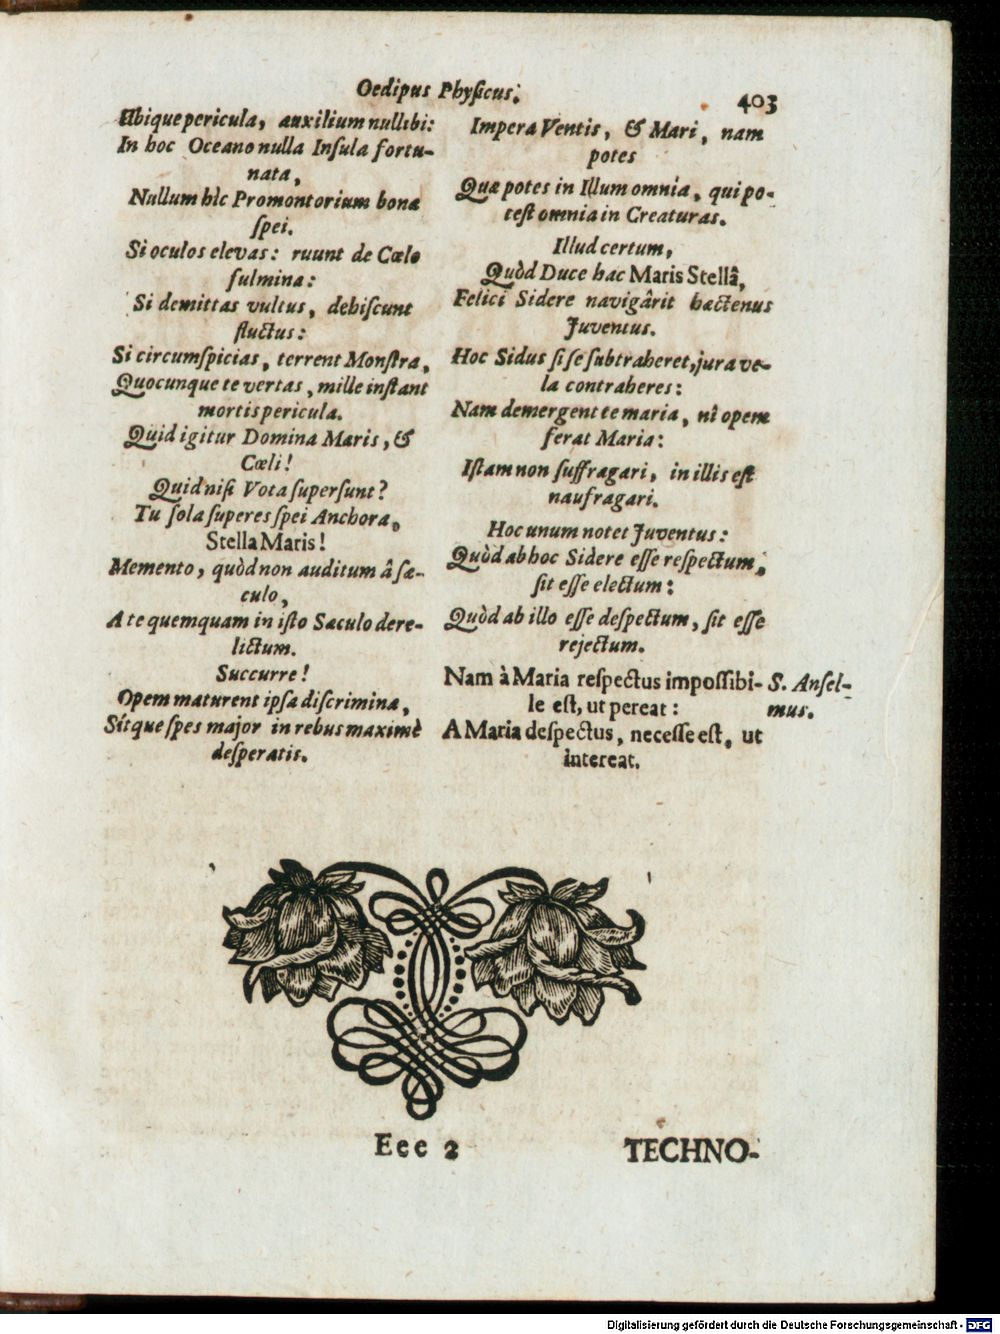 Oedipus Physicus.
403
Ubique pericula, auxilium nullibi:
In hoc Oceano nulla Insula fortu-
nata,
Nullum hìc Promontorium bonæ
spei.
Si oculos elevas: ruunt de Cœlo
fulmina:
Si demittas vultus, dehiscunt
fluctus:
Si circumspicias, terrent Monstra,
Quocunque te vertas, mille instant
mortis pericula.
Quid igitur Domina Maris, &
Cœli!
Quid nisi Vota supersunt?
Tu sola superes spei Anchora,
Stella Maris!
Memento, quòd non auditum â sæ-
culo,
A te quemquam in isto Sæculo dere-
lictum.
Succurre!
Opem maturent ipsa discrimina,
Sítque spes major in rebus maximè
desperatis.
Impera Ventis, & Mari, nam
potes
Quæ potes in Illum omnia, qui po-
test omnia in Creaturas.
Illud certum,
Quòd Duce hac Maris Stellâ,
Felici Sidere navigârit hactenus
Juventus.
Hoc Sidus si se subtraheret, jura ve-
la contraheres:
Nam demergent te maria, nî opem
ferat Maria:
Istam non suffragari, in illis est
naufragari.
Hoc unum notet Juventus:
Quòd ab hoc Sidere esse respectum,
sit esse electum:
Quòd ab illo esse despectum, sit esse
rejectum.
Nam à Maria respectus impossibi-
le est, ut pereat:
A Maria despectus, necesse est, ut
intereat.
S. Ansel-
mus.
Eee 2
TECHNO-
Digitalisierung gefördert durch die Deutsche Forschungsgemeinschaft - DFG